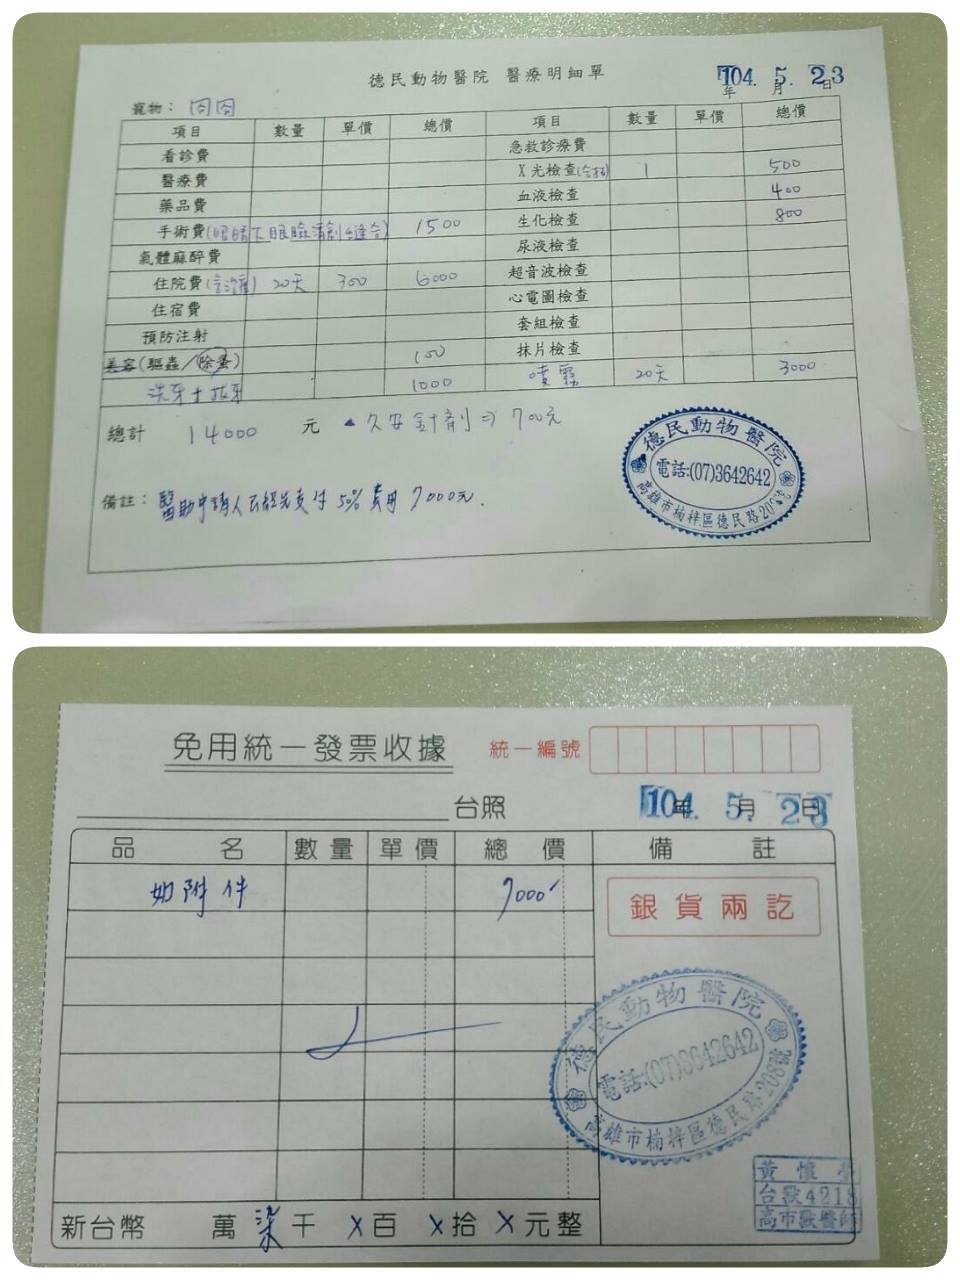 德民動物醫院 醫療明細單
104. 5. 23
年 月 日
寵物： 冏冏
項目 數量 單價 總價 項目 數量 單價 總價
看診費 急救診療費
醫療費 X光檢查 1 500
藥品費 血液檢查 400
手術費(眼睛下眼瞼清創&縫合) 1500 生化檢查 800
氣體麻醉費 尿液檢查
住院費 20天 300 6000 超音波檢查
住宿費 心電圖檢查
預防注射 套組檢查
美容(驅蟲/除蚤) 100 抹片檢查
洗牙+拔牙 1000 噴霧 20天 3000
總計 14000 元 ▲久安針劑⇒700元
備註： 醫助申請人已經先支付50%費用7000元.
德民動物醫院
電話:(07)3642642
高雄市楠梓區德民路208號
免用統一發票收據 統一編號
台照 104年 5.月 23日
品名 數量 單價 總價 備註
如附件 7000 銀貨兩訖
德民動物醫院
電話:(07)3642642
高雄市楠梓區德民路208號
黃懷
台獸4218
高市獸醫師
新台幣 萬 柒 千 X 百 X 拾 X 元整